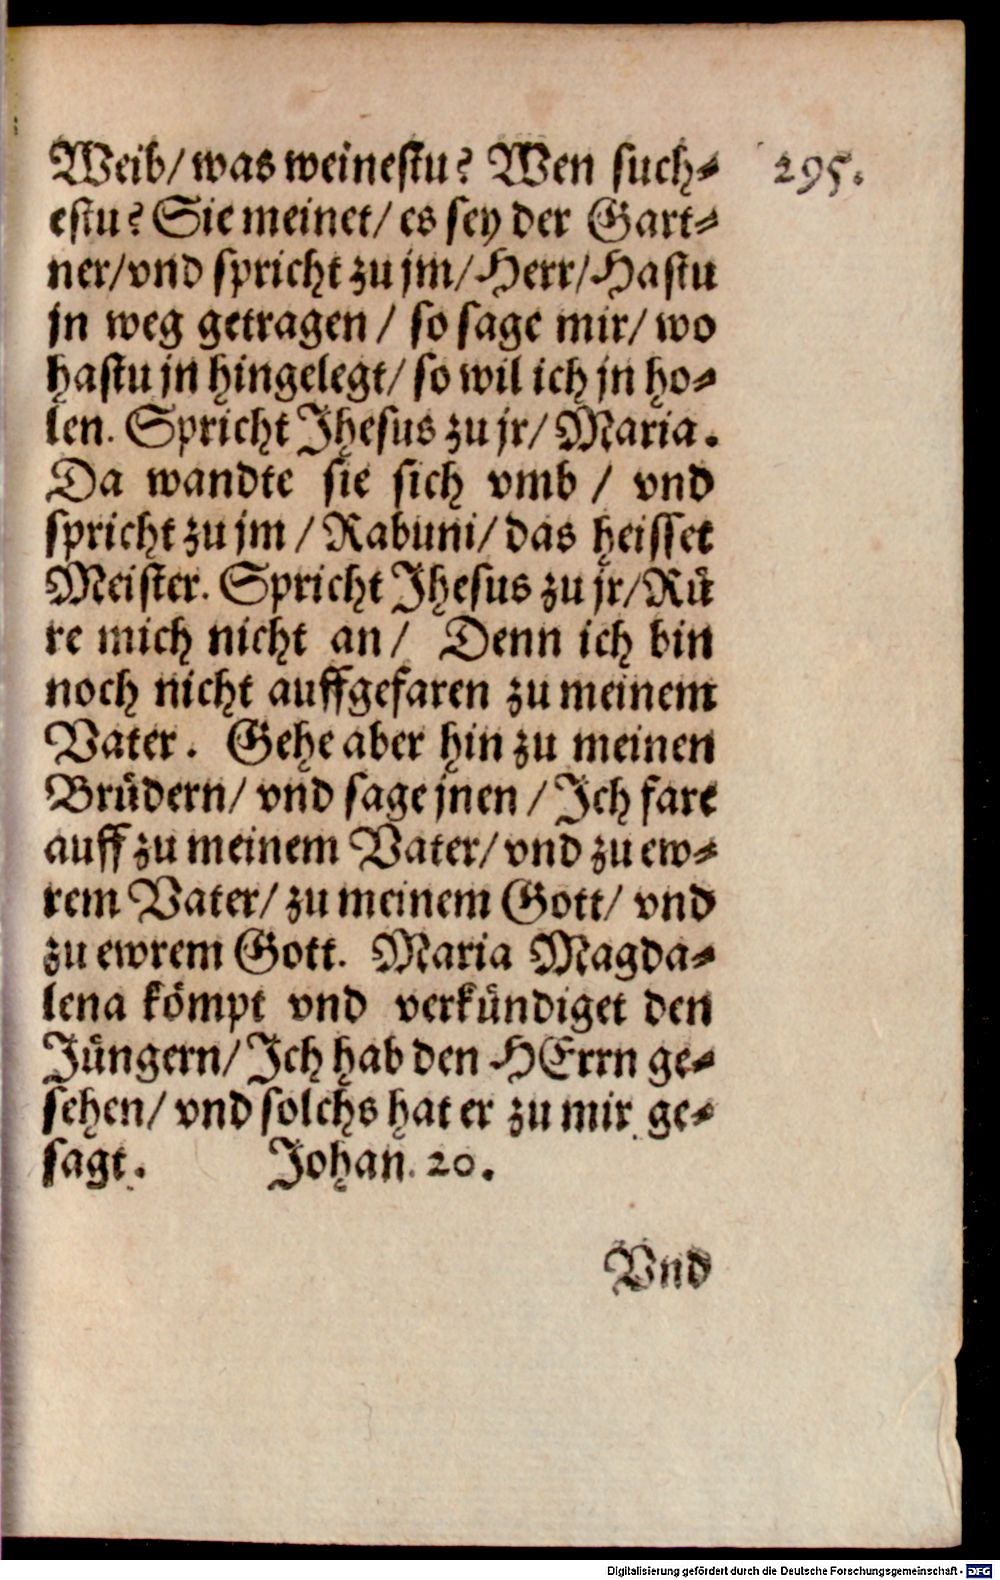 Weib/ was weinestu? Wen such-
295.
estu? Sie meinet/ es sey der Gart-
ner/ vnd spricht zu jm/ Herr/ Hastu
jn weg getragen / so sage mir/ wo
hastu jn hingelegt/ so wil ich jn ho-
len. Spricht Jhesus zu jr/ Maria.
Da wandte sie sich vmb / vnd
spricht zu jm / Rabuni/ das heisset
Meister. Spricht Jhesus zu jr/ Rü
re mich nicht an/ Denn ich bin
noch nicht auffgefaren zu meinem
Vater. Gehe aber hin zu meinen
Brüdern/ vnd sage jnen / Ich fare
auff zu meinem Vater/ vnd zu ew-
rem Vater/ zu meinem Gott/ vnd
zu ewrem Gott. Maria Magda-
lena kömpt vnd verkündiget den
Jüngern/ Ich hab den HErrn ge-
sehen/ vnd solchs hat er zu mir ge-
sagt. Johan. 20.
Vnd
Digitalisierung gefördert durch die Deutsche Forschungsgemeinschaft - DFG